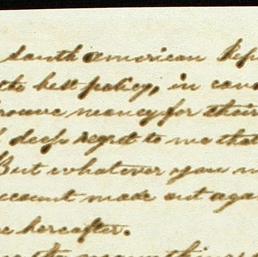 South American Rep
the best policy, in con
money for their
deep regret to me that
But whatever you m
account made out aga
hereafter.